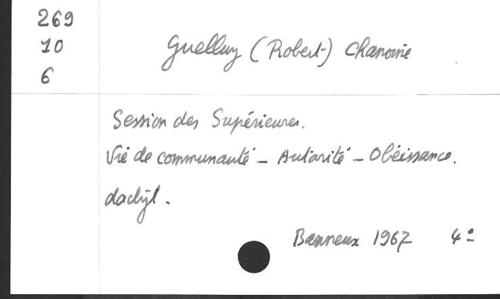 269
10
6
Guelluy (Robert) Chanoine
Session des Supérieures.
Vie de communauté - Autorité - Obéissance.
dactyl.
Banneux 1967 4°